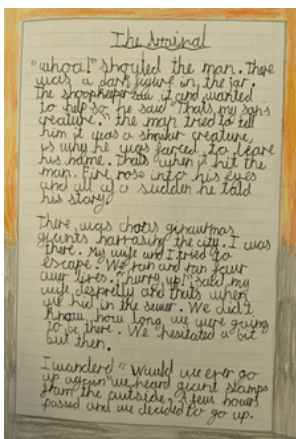 The Arrival
"whoa!" shouted the man. There
was a dark figure in the jar.
The shoopkeeper saw it and wanted
to help so he said "thats my son's
creature." the man tried to tell
him it was a similar creature,
is why he was forced to leave
his home. Thats when it hit the
man. Fire rose into his eyes
and all of a sudden he told
his story.
There was chaos ginautmas
giants harrasing the city. I was
there. My wife and I tried to
escape. We ran and ran four
our lives. "hurry up!" said my
wife despretly and thats when
we hid in the sewer. We did'nt
know how long we were going
to be there. We hesitated a bit
but then.
I wanderd "Would we ever go
up again" we heard giant stamps
from the outside, a few hours
passed and we decided to go up.